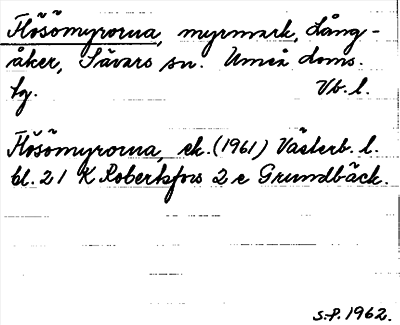 Flösömyrorna, myrmark, Lång-
åker, Sävars sn. Umeå doms.
tg. Vb. l.
Flösömyrorna, ek. (1961) Västerb. l.
bl. 21 K Robertsfors 2 e Grundbäck.
S.P. 1962.